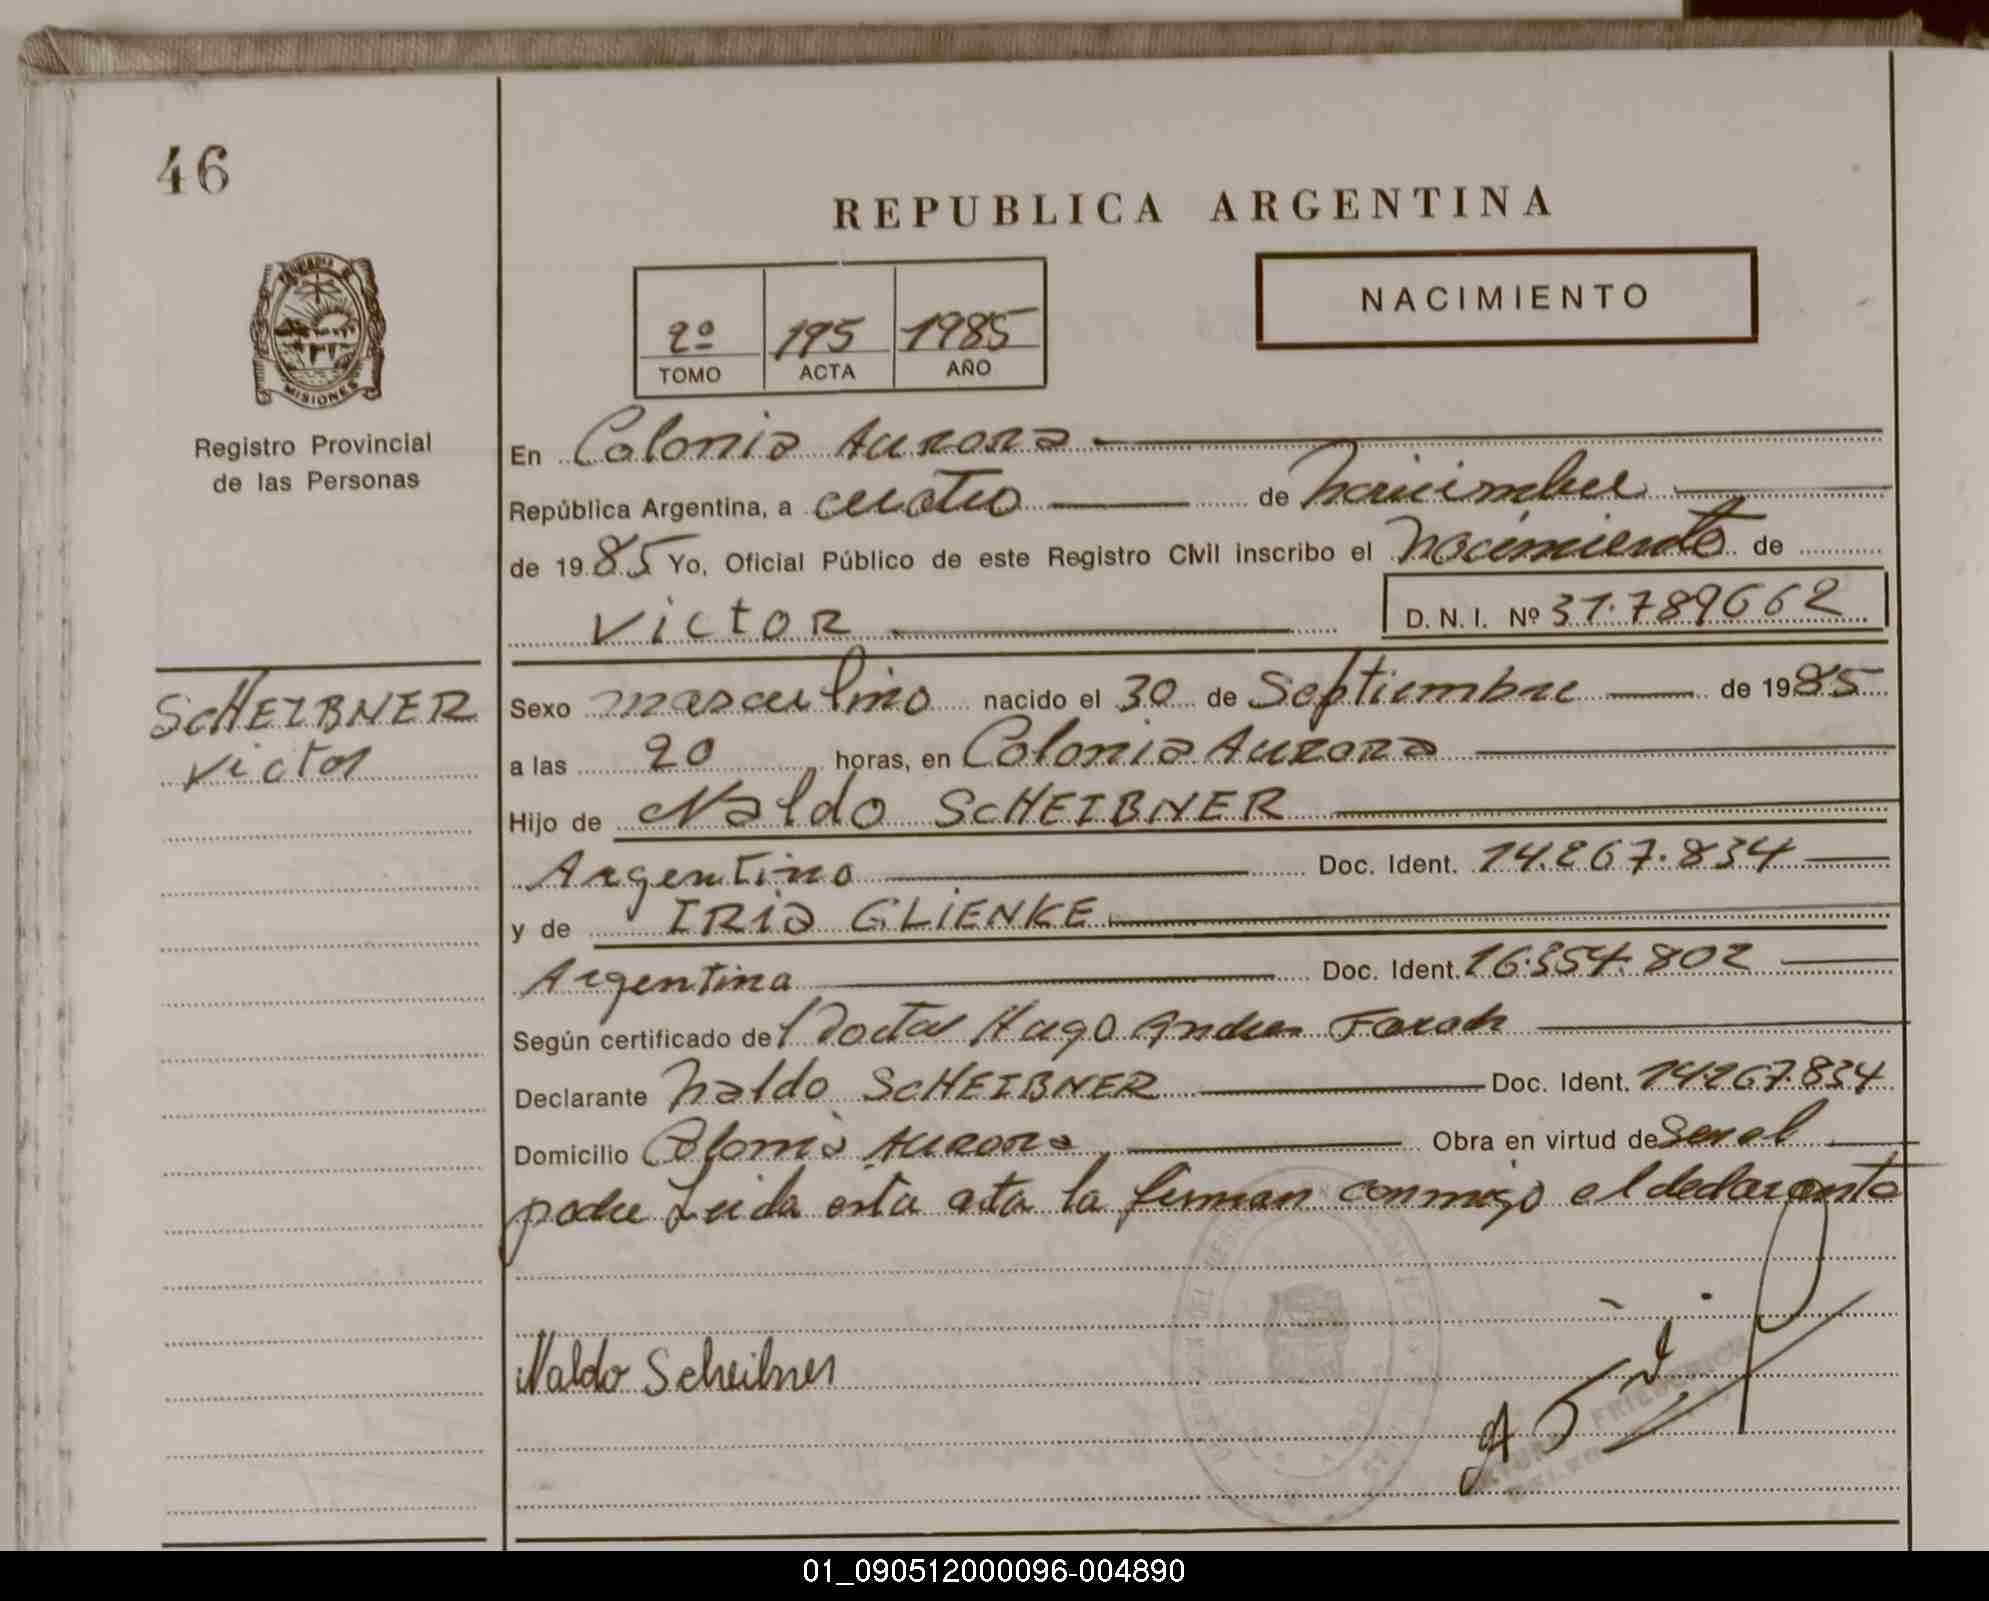 46
REPUBLICA ARGENTINA
NACIMIENTO
2º 195 1985
TOMO ACTA AÑO
MISIONES
Registro Provincial
de las Personas
En Colonia Aurora
República Argentina, a cuatro de Noviembre
de 1985 Yo, Oficial Público de este Registro Civil inscribo el Nacimiento de
Victor D. N. I. Nº 31.789662
SCHEIBNER
Victor
Sexo masculino nacido el 30 de Septiembre de 1985
a las 20 horas, en Colonia Aurora
Hijo de Naldo SCHEIBNER
Argentino Doc. Ident. 14.267.834
y de IRIA GLIENKE
Argentina Doc. Ident. 16.354.802
Según certificado de Doctor Hugo Andres Farah
Declarante Naldo SCHEIBNER Doc. Ident. 14.267.834
Domicilio Colonia Aurora Obra en virtud de Ser el
padre Leida esta acta la firman conmigo el declarante
Naldo Scheibner
01_090512000096-004890